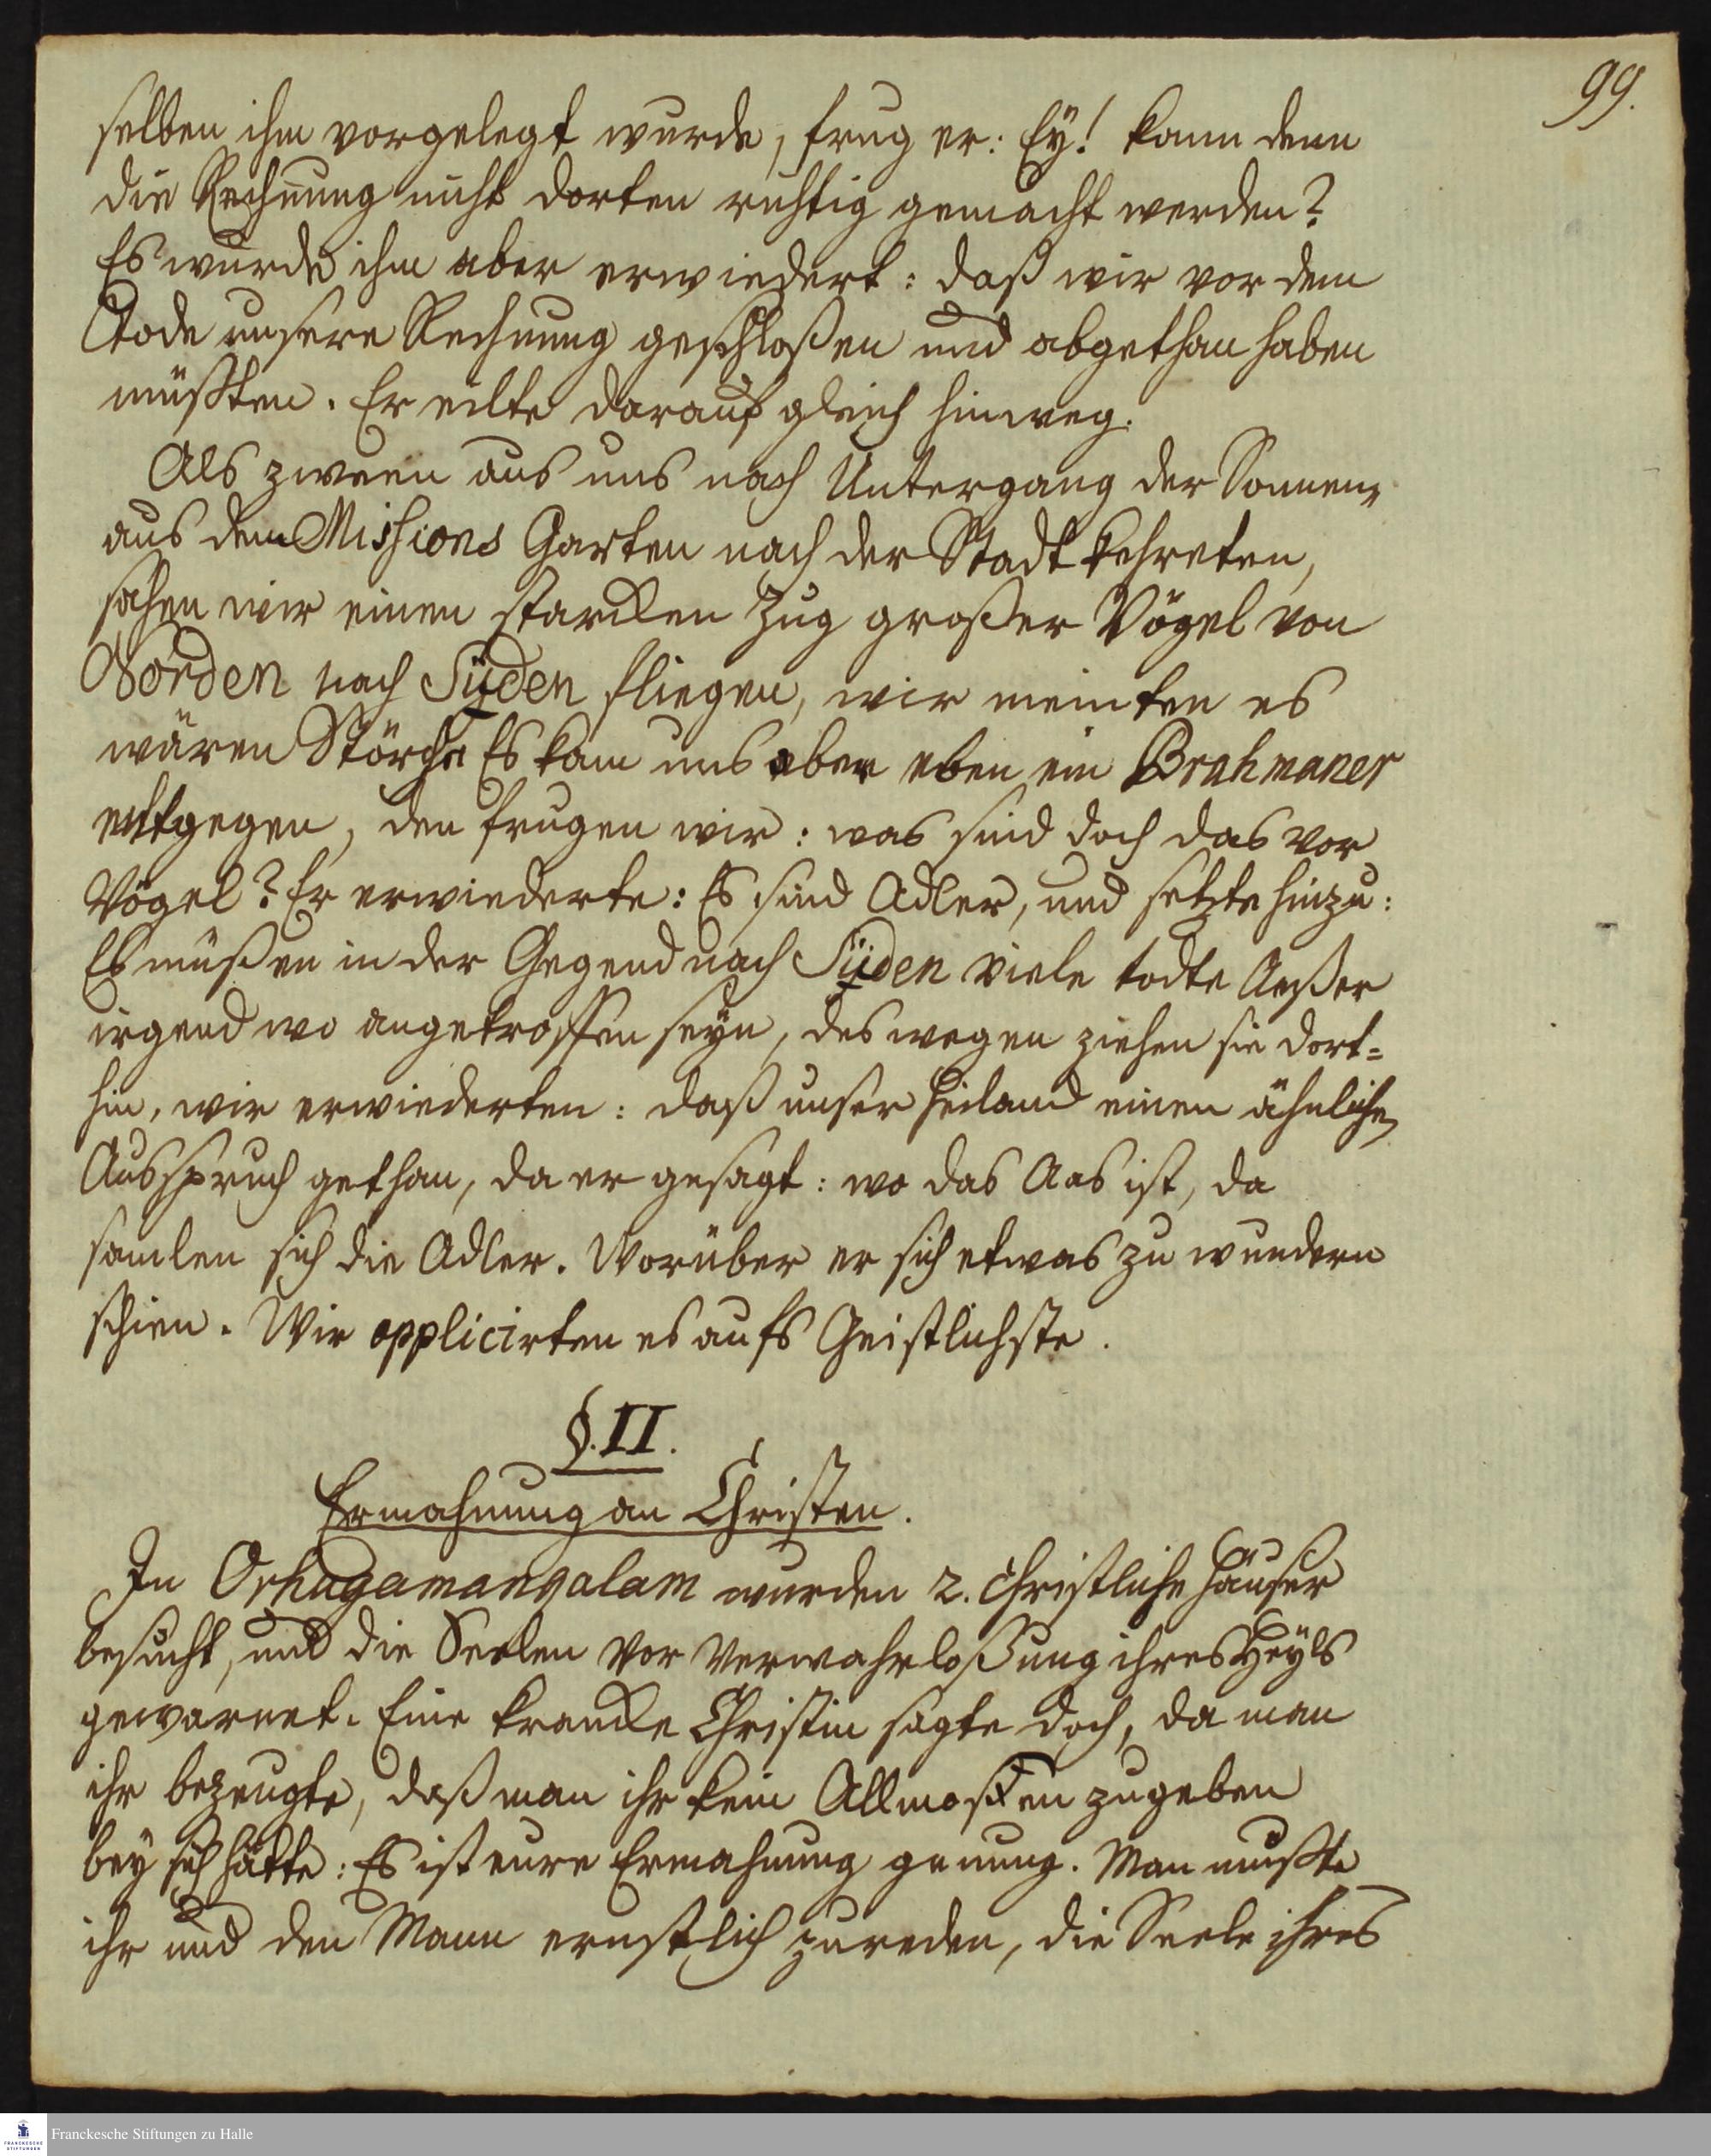 99.
selben ihm vorgelegt wurde, frug er: Ey! kann denn
die Rechnung nicht dorten richtig gemacht werden?
Es wurde ihm aber erwiedert: daß wir vor dem
Tode unsere Rechnung geschloßen und abgethan haben
müßten. Er eilte darauf gleich hinweg.
Als zween aus uns nach Untergang der Sonnen,
aus dem Missions Garten nach der Stadt kehreten,
sahen wir einen starcken Zug großer Vögel von
Norden nach Süden fliegen, wir meinten es
wären Störche Es kam uns aber eben ein Brahmaner
entgegen, den frugen wir: was sind doch das vor
Vögel? Er erwiederte: Es sind Adler, und setzte hinzu:
Es müßen in der Gegend nach Süden viele todte Aeßer
irgend wo angetroffen seyn, deswegen ziehen sie dort=
hin, wir erwiederten: daß unser Heiland einen ähnlichen
Ausspruch gethan, da er gesagt: wo das Aas ist, da
samlen sich die Adler. Worüber er sich etwas zu wundern
schien. Wir applicirten es aufs Geistlichste.
§. II.
Ermahnung an Christen.
In Orhugamangalam wurden 2. Christliche Häußer
besucht, und die Seelen vor Verwahrloßung ihres Heyls
gewarnet. Eine krancke Christin sagte doch, da man
ihr bezeugte, daß man ihr kein Allmosen zugeben
bey sich hätte: Es ist eure Ermahnung genung. Man mußte
ihr und den Mann ernstlich zureden, die Seele ihres
Franckesche Stiftungen zu Halle